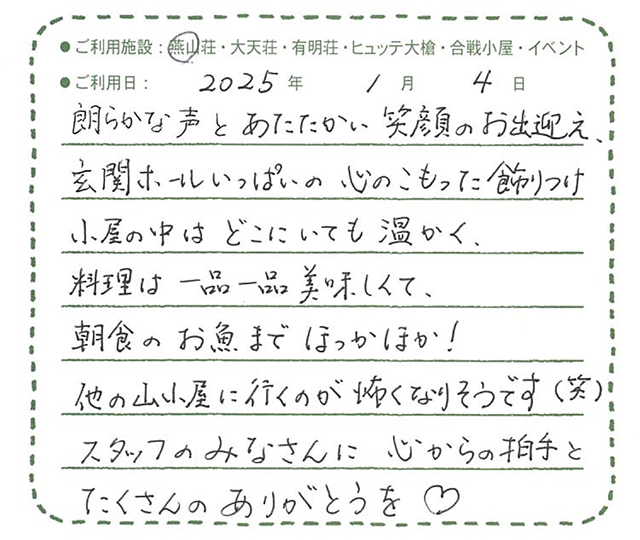 ●ご利用施設：燕山荘・大天荘・有明荘・ヒュッテ大槍・合戦小屋・イベント
●ご利用日： 2025 年 1 月 4 日
朗らかな声とあたたかい笑顔のお出迎え、
玄関ホールいっぱいの心のこもった飾りつけ
小屋の中はどこにいても温かく、
料理は一品一品美味しくて、
朝食のお魚までほっかほか！
他の山小屋に行くのが怖くなりそうです（笑）
スタッフのみなさんに心からの拍手と
たくさんのありがとうを♡